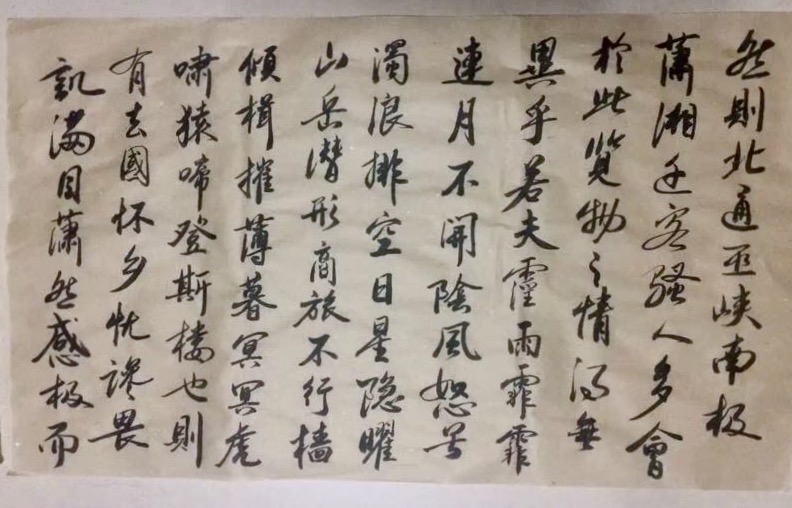 然則北通巫峡南极
萧湘迁客骚人多會
於此览物之情得無
異乎若夫霪雨霏霏
連月不開陰風怒号
濁浪排空日星隐曜
山岳潜形商旅不行檣
傾楫摧薄暮冥冥虎
啸猿啼登斯楼也則
有去國怀乡忧谗畏
訊满目萧然感极而